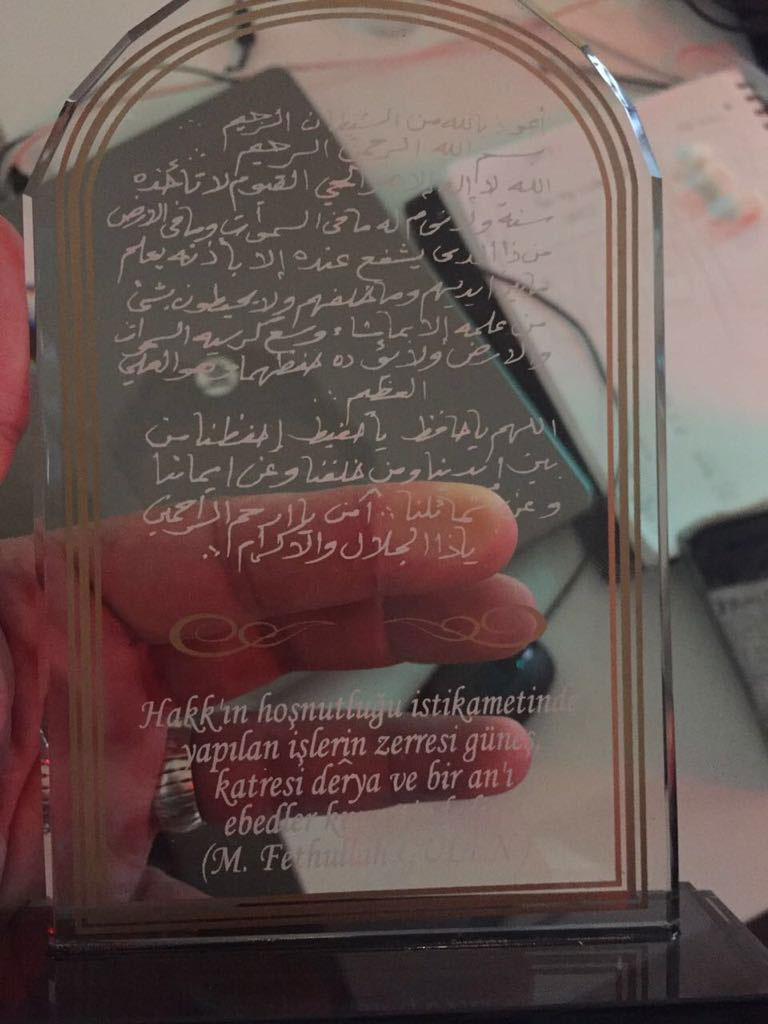 أعوذ بالله من الشيطان الرجيم
بسم الله الرحمن الرحيم
الله لا إله إلا هو الحي القيوم لا تأخذه
سنة ولا نوم له ما في السموات وما في الارض
من ذا الذي يشفع عنده إلا بإذنه يعلم
ما بين ايديهم وما خلفهم ولا يحيطون بشئ
من علمه إلا بما شاء وسع كرسيه السموات
والارض ولا يؤده حفظهما وهو العلي
العظيم
اللهم يا حافظ يا حفيظ إحفظنا من
بين ايدينا ومن خلفنا وعن ايماننا
وعن شمائلنا آمن يا ارحم الراحمين
ياذا الجلال والاكرام
Hakk'ın hoşnutluğu istikametinde
yapılan işlerin zerresi güneş,
katresi derya ve bir an'ı
ebedler
(M. Fethullah GÜLEN)